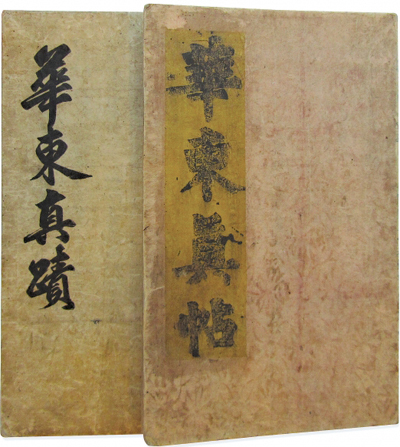 華東真蹟
華東真帖